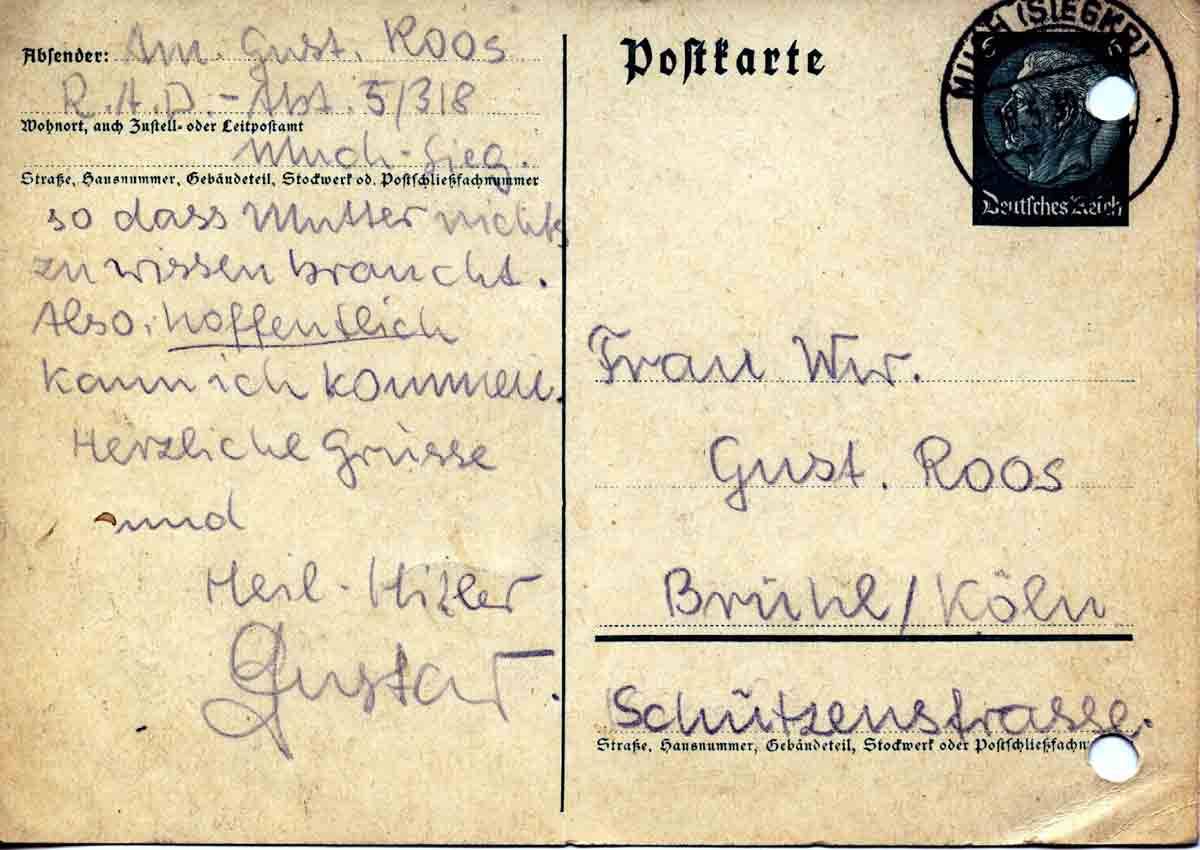 Absender: Am. Gust. Roos
R.A.D.-Abt. 5/318
Wohnort, auch Zustell- oder Leitpostamt
Much-Sieg.
Straße, Hausnummer, Gebäudeteil, Stockwerk od. Postschließfachnummer
so dass Mutter nichts
zu wissen braucht.
Also, hoffentlich
kann ich kommen.
Herzliche Grüsse
und
Heil-Hitler
Gustav.
Postkarte
MUCH (SIEGKR)
6 6
Deutsches Reich
Frau Ww.
Gust. Roos
Brühl/Köln
Schützenstrasse.
Straße, Hausnummer, Gebäudeteil, Stockwerk oder Postschließfachn